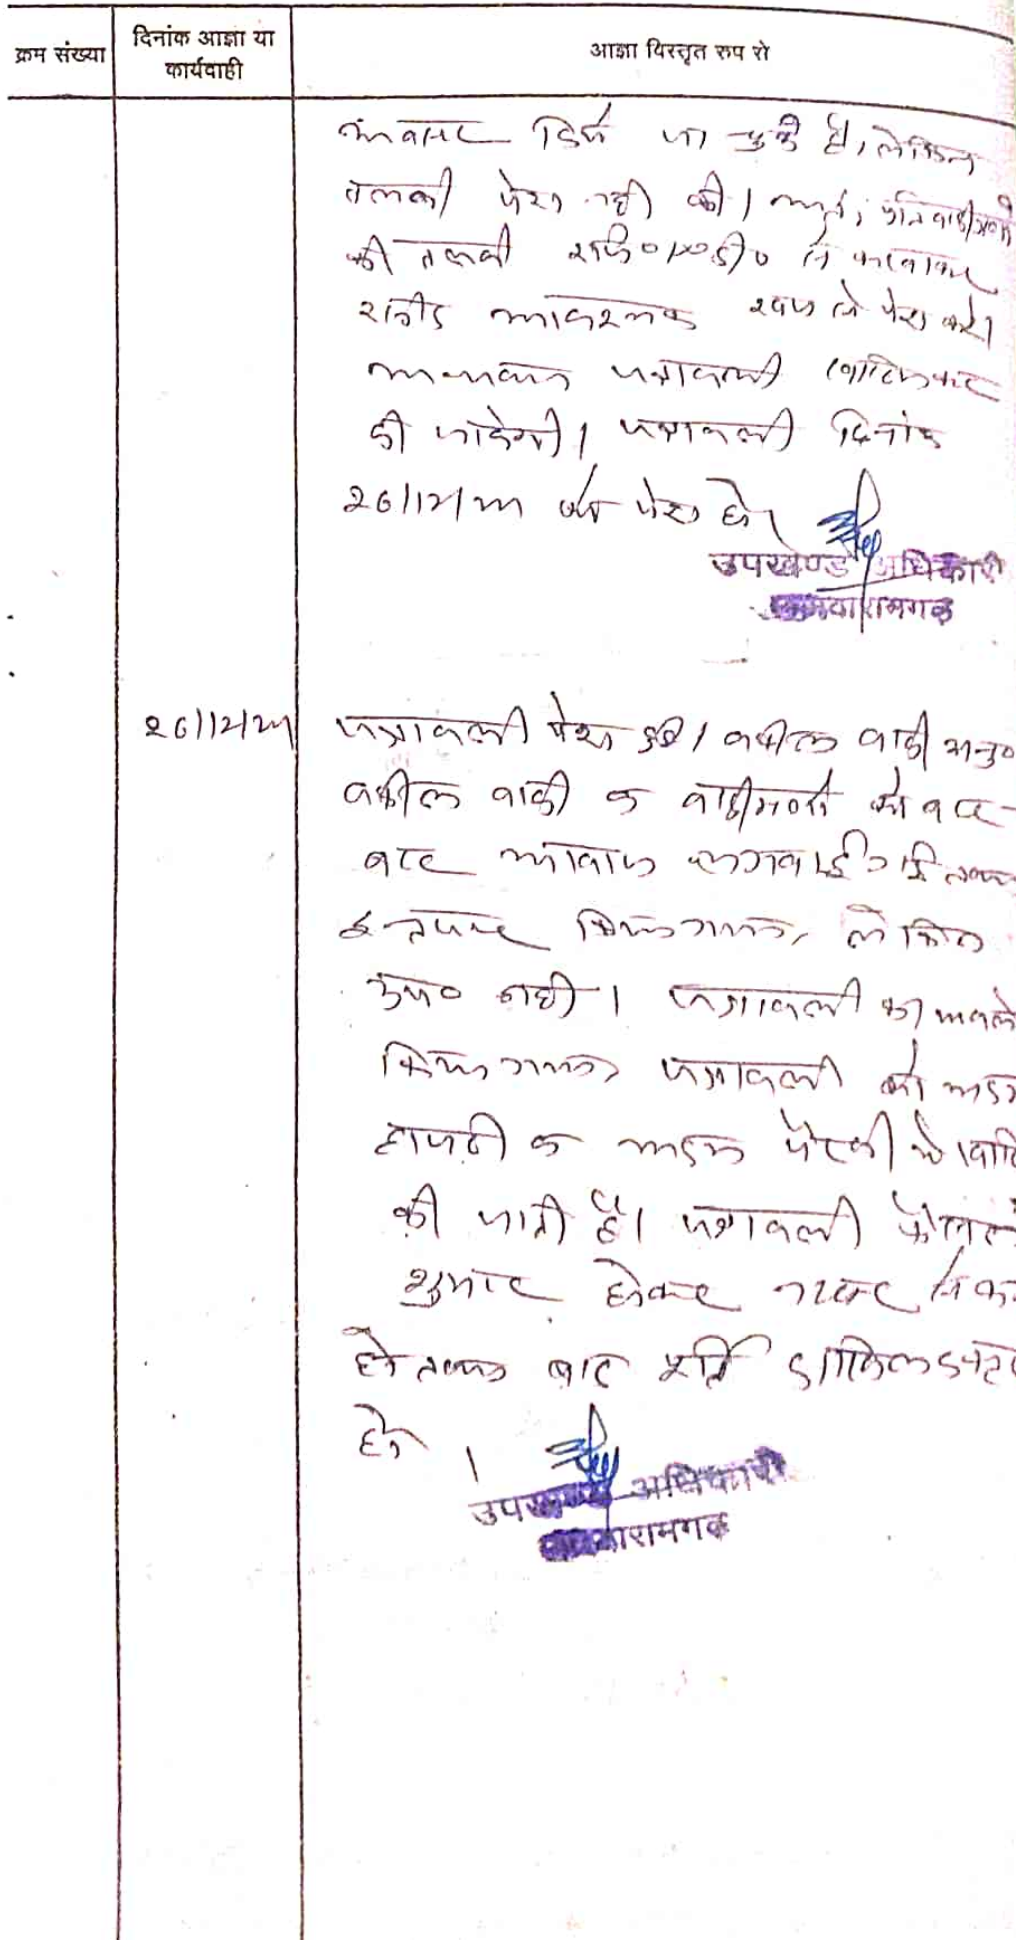 क्रम संख्या
दिनांक आज्ञा या
कार्यवाही
आज्ञा विस्तृत रूप से
अवसर दिये जा चुके हैं, लेकिन
तलबी पेश नहीं की। अतः प्रतिवादीगणों
की तलबी रजि०ए०डी० से करवाकर
रसीद आवश्यक रूप से पेश करें।
पत्रावली खारिज कर
दी जावेगी। पत्रावली दिनांक
26/12/22 को पेश हो।
उपखण्ड अधिकारी
जमवारामगढ़
26/12/22
पत्रावली पेश हुई। वकील वादी अनु०
वकील वादी व वादीगणों को बार-
बार आवाज लगवाई
इन्तजार किया गया, लेकिन
उप० नहीं। पत्रावली का अवलो
किया गया। पत्रावली को अदम
हाजरी व अदम पैरवी में खारि
की जाती है। पत्रावली फैसल
शुमार होकर नम्बर से कम
हो बाद पूर्ति दाखिल दफ्तर
हो।
उपखण्ड अधिकारी
जमवारामगढ़